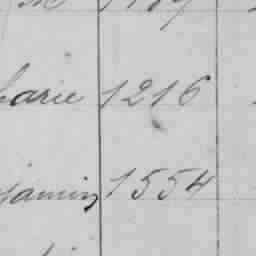 arie 1216
jamin 1554